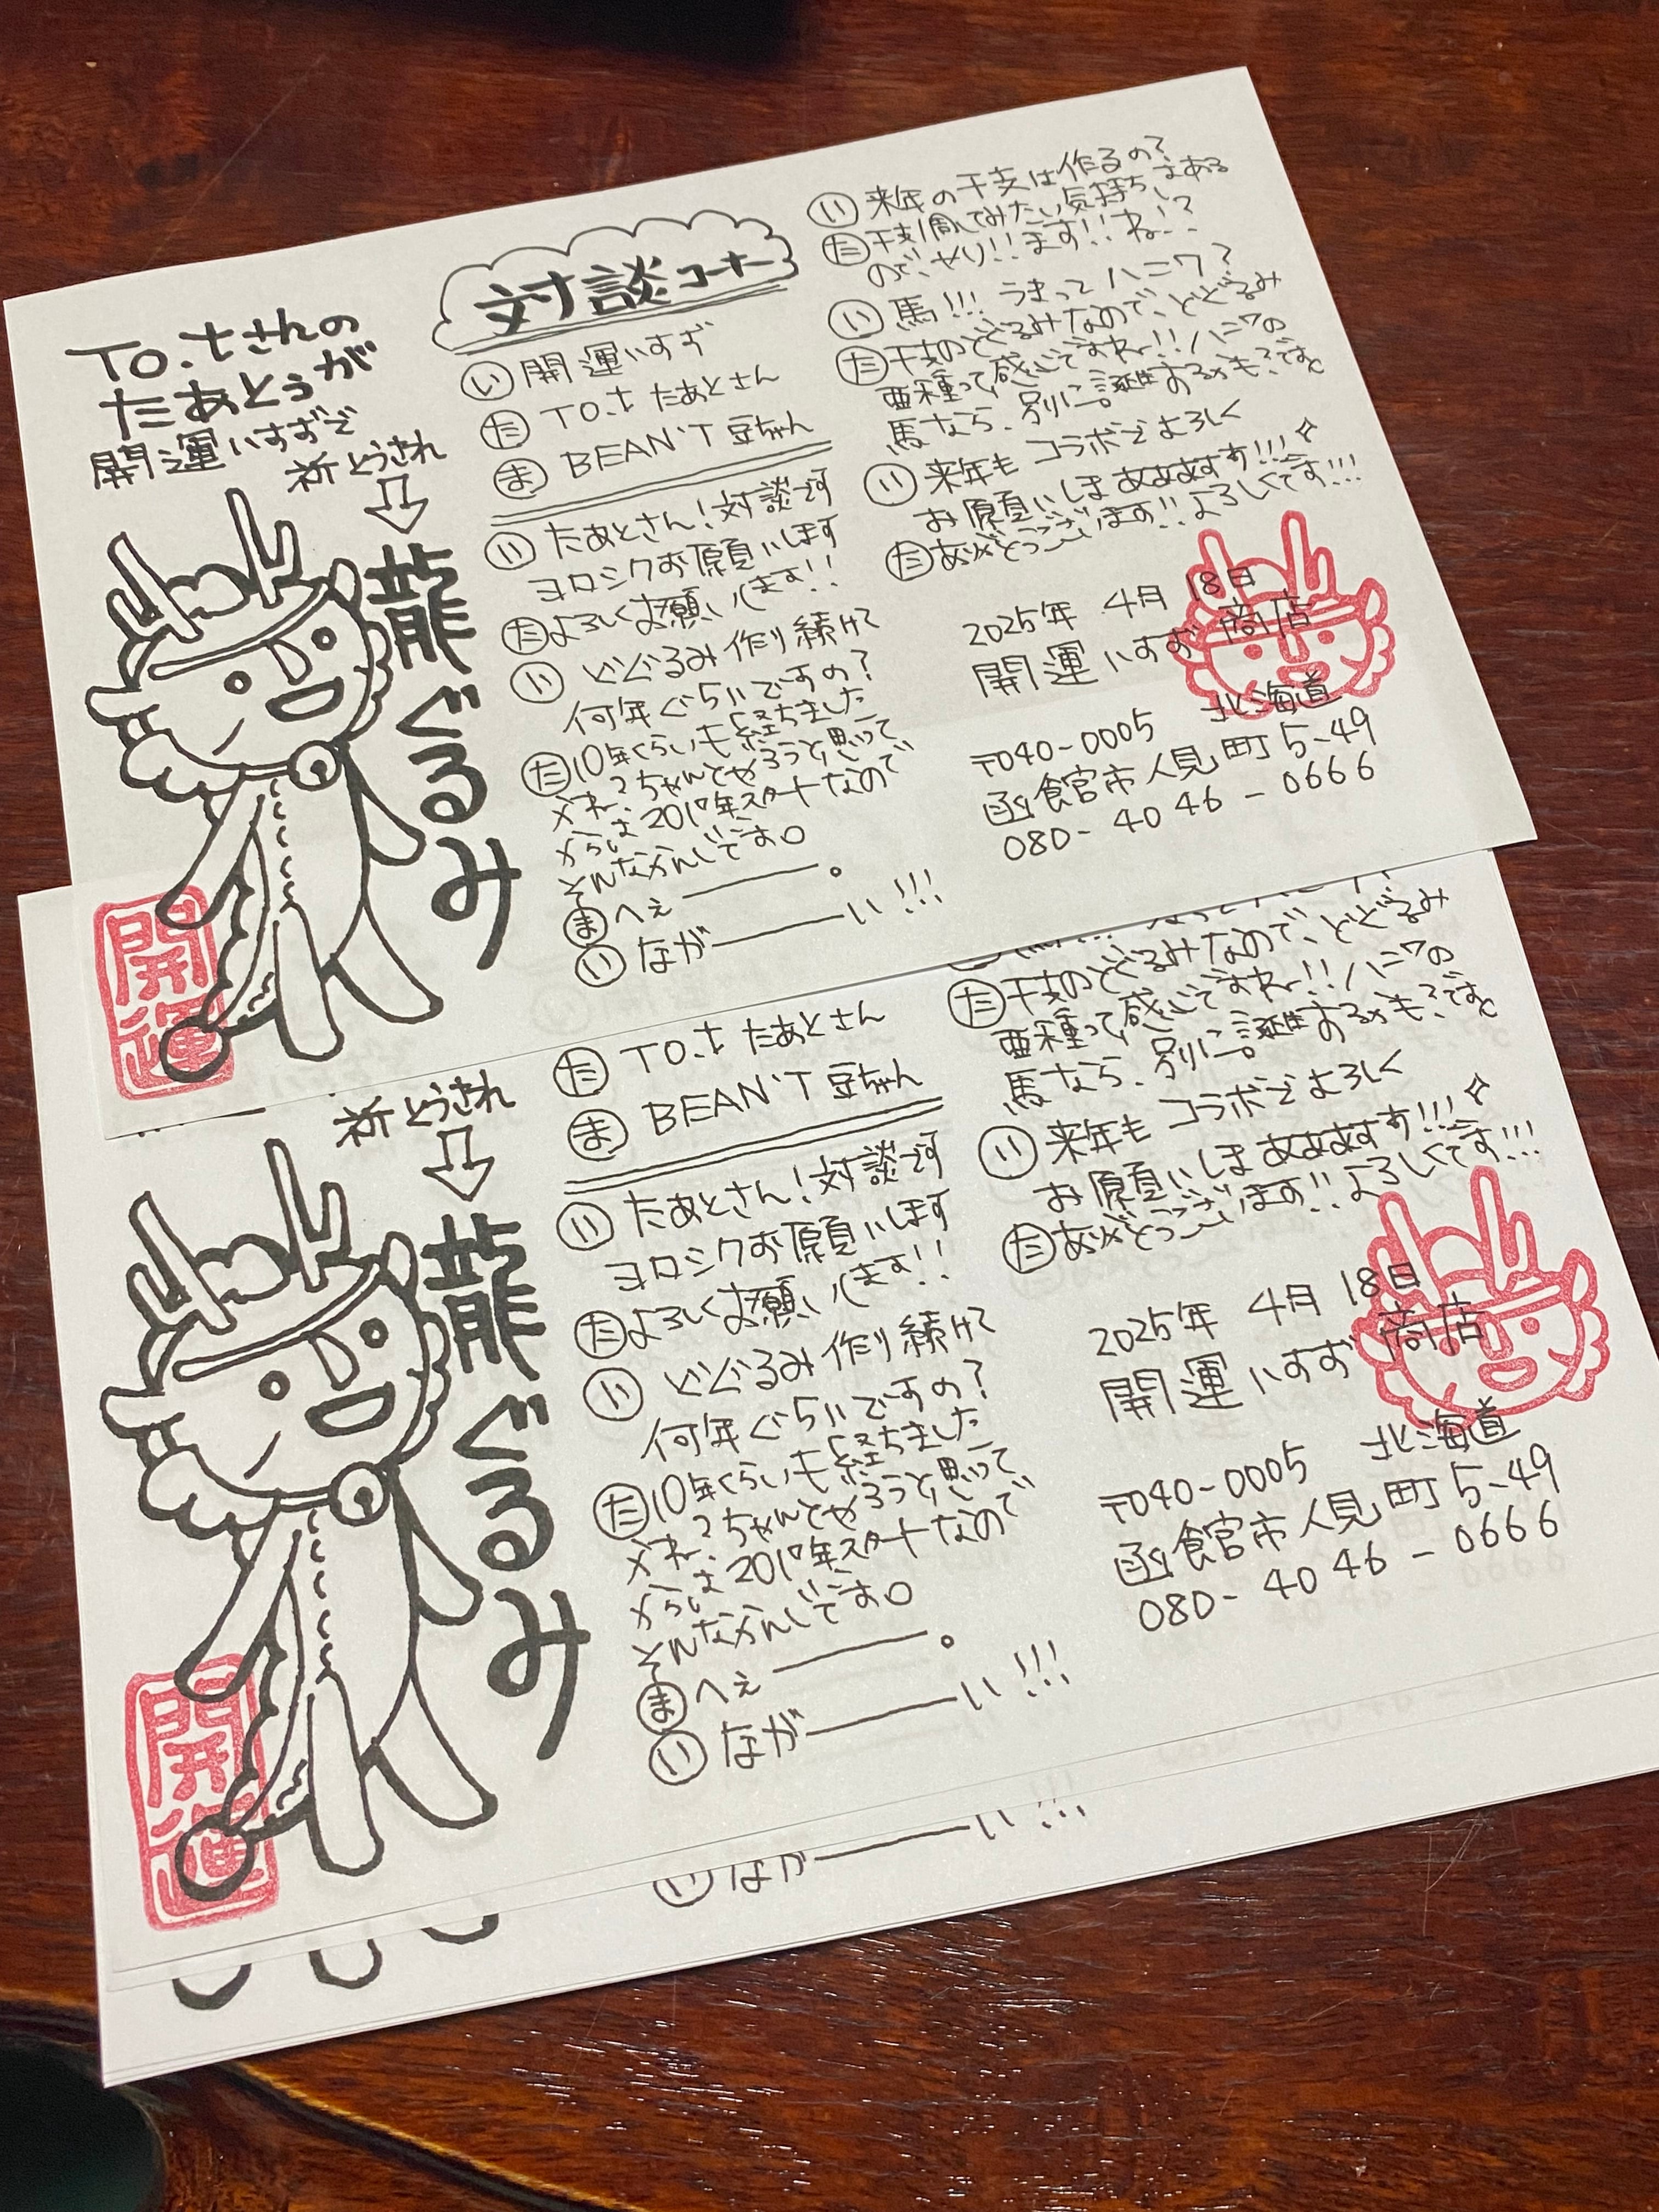 To.tさんの
たあとぅが
開運いすずで
祈とうされ
龍ぐるみ
開運
対談コーナー
い 開運いすず
た TO.t たあとさん
ま BEAN'T 豆ちゃん
い たあとさん!対談
ヨロシクお願いします
た よろしくお願いします!!
い どぐぐるみ作り続けて
何年ぐらいですの?
た 10年くらいも経ちました
かね?ちゃんとやろうと思って
からは201 年スタートなので
そんなかんじです。
ま へぇ―――。
い なが―――い!!!
い 来年の干支は作るの?
た 干支1周してみたい気持ちはある
ので、やり!!ます!!ね!?
い 馬!!! うまってハニワ?
た 干支のどぐるみなので、どぐるみ
亜種って感じですねー!!ハニワの
馬なら、別に誕生するかも?ですと
い 来年も コラボでよろしく
お願いしまああああすす!!!
た ありがとうございます!!よろしくです!!!
2025年 4月 18日
開運いすず 商店
〒040-0005 北海道
函館市人見町5-49
080-4046-0666
祈とうされ
龍ぐるみ
開運
た TO.t たあとさん
ま BEAN'T 豆ちゃん
い たあとさん!対談
ヨロシクお願いします
た よろしくお願いします!!
い どぐぐるみ作り続けて
何年ぐらいですの?
た 10年くらいも経ちました
かね?ちゃんとやろうと思って
からは201 年スタートなので
そんなかんじです。
ま へぇ―――。
い なが―――い!!!
た 干支のどぐるみなので、どぐるみ
亜種って感じですねー!!ハニワの
馬なら、別に誕生するかも?ですと
い 来年も コラボでよろしく
お願いしまああああすす!!!
た ありがとうございます!!よろしくです!!!
2025年 4月 18日
開運いすず 商店
〒040-0005 北海道
函館市人見町5-49
080-4046-0666
い なが―――い!!!